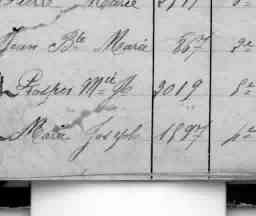 Marie
Jean Bte Marie 867 2e
Prosper Mie A 2019 8e
Marie Joseph 1897 4e